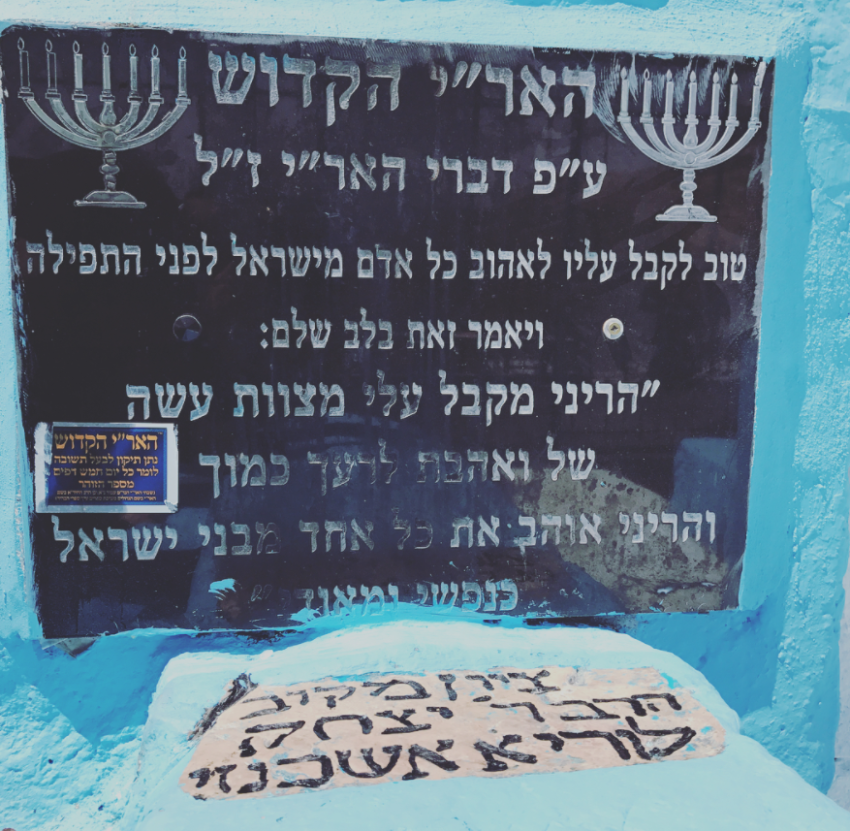 האר״י הקדוש
ע״פ דברי האר״י ז״ל
טוב לקבל עליו לאהוב כל אדם מישראל לפני התפילה
ויאמר זאת בלב שלם:
״הריני מקבל עלי מצוות עשה
של ואהבת לרעך כמוך
והריני אוהב את כל אחד מבני ישראל
כנפשי ומאודי״
האר״י הקדוש
נתן תיקון לבעל תשובה
לומר כל יום חמש דפים
מספר הזוהר
ציון מקוב
הרב ר׳ יצחק
לוריא אשכנזי